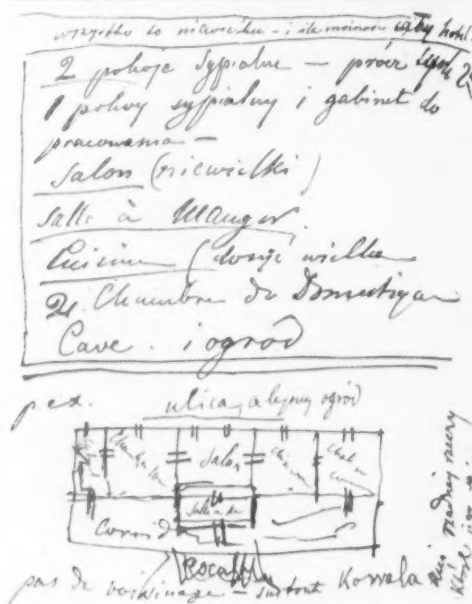 wszystko to niewielkie – i ile możności cały hotel
2 pokoje sypialne – prócz
1 pokoy sypialny i gabinet do
pracowania –
Salon (niewielki)
Salle à Manger
Cuisine (dosyć wielka
2 Chambre de Domestique
Cave . i ogród
p. ex. ulica, ogród
Salon
Corrid
escalier
pas de voisinage – surtout Kowala